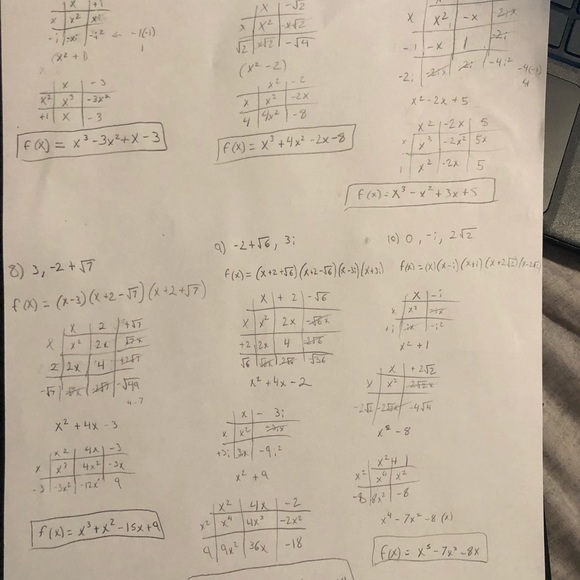 x +1
x x²
-i -i² ← -1(-1)
1
(x² + 1)
x -3
x² x³ -3x²
+1 x -3
f(x) = x³ - 3x² + x - 3
x -√2
x x² -x√2
√2 x√2 -√4
(x² - 2)
x² -2
x x³ -2x
4 4x² -8
f(x) = x³ + 4x² - 2x - 8
x x² -x -2ix
-1 -x 1 2i
-2i -2ix 2i -4i² -4(-1)
4
x² - 2x + 5
x² -2x 5
x x³ -2x² 5x
1 x² -2x 5
f(x) = x³ - x² + 3x + 5
8) 3, -2 + √7
f(x) = (x-3)(x+2-√7)(x+2+√7)
x 2 +√7
x x² 2x √7x
2 2x 4 +2√7
-√7 -√7x -2√7 -√49
4-7
x² + 4x - 3
x² 4x -3
x x³ 4x² -3x
-3 -3x² -12x 9
f(x) = x³ + x² - 15x + 9
9) -2 + √6, 3i
f(x) = (x+2+√6)(x+2-√6)(x-3i)(x+3i)
x + 2 -√6
x x² 2x -√6x
+2 2x 4 -2√6
√6 √6x 2√6 -√36
x² + 4x - 2
x - 3i
x x² -3ix
+3i 3ix -9i²
x² + 9
x² 4x -2
x² x⁴ 4x³ -2x²
9 9x² 36x -18
10) 0, -i, 2√2
f(x) = (x)(x-i)(x+i)(x+2√2)(x-2√2)
x -i
x x² -ix
+i ix -i²
x² + 1
x +2√2
x x² 2√2x
-2√2 -2√2x -4√4
x² - 8
x² + 1
x² x⁴ x²
-8 -8x² -8
x⁴ - 7x² - 8 (x)
f(x) = x⁵ - 7x³ - 8x